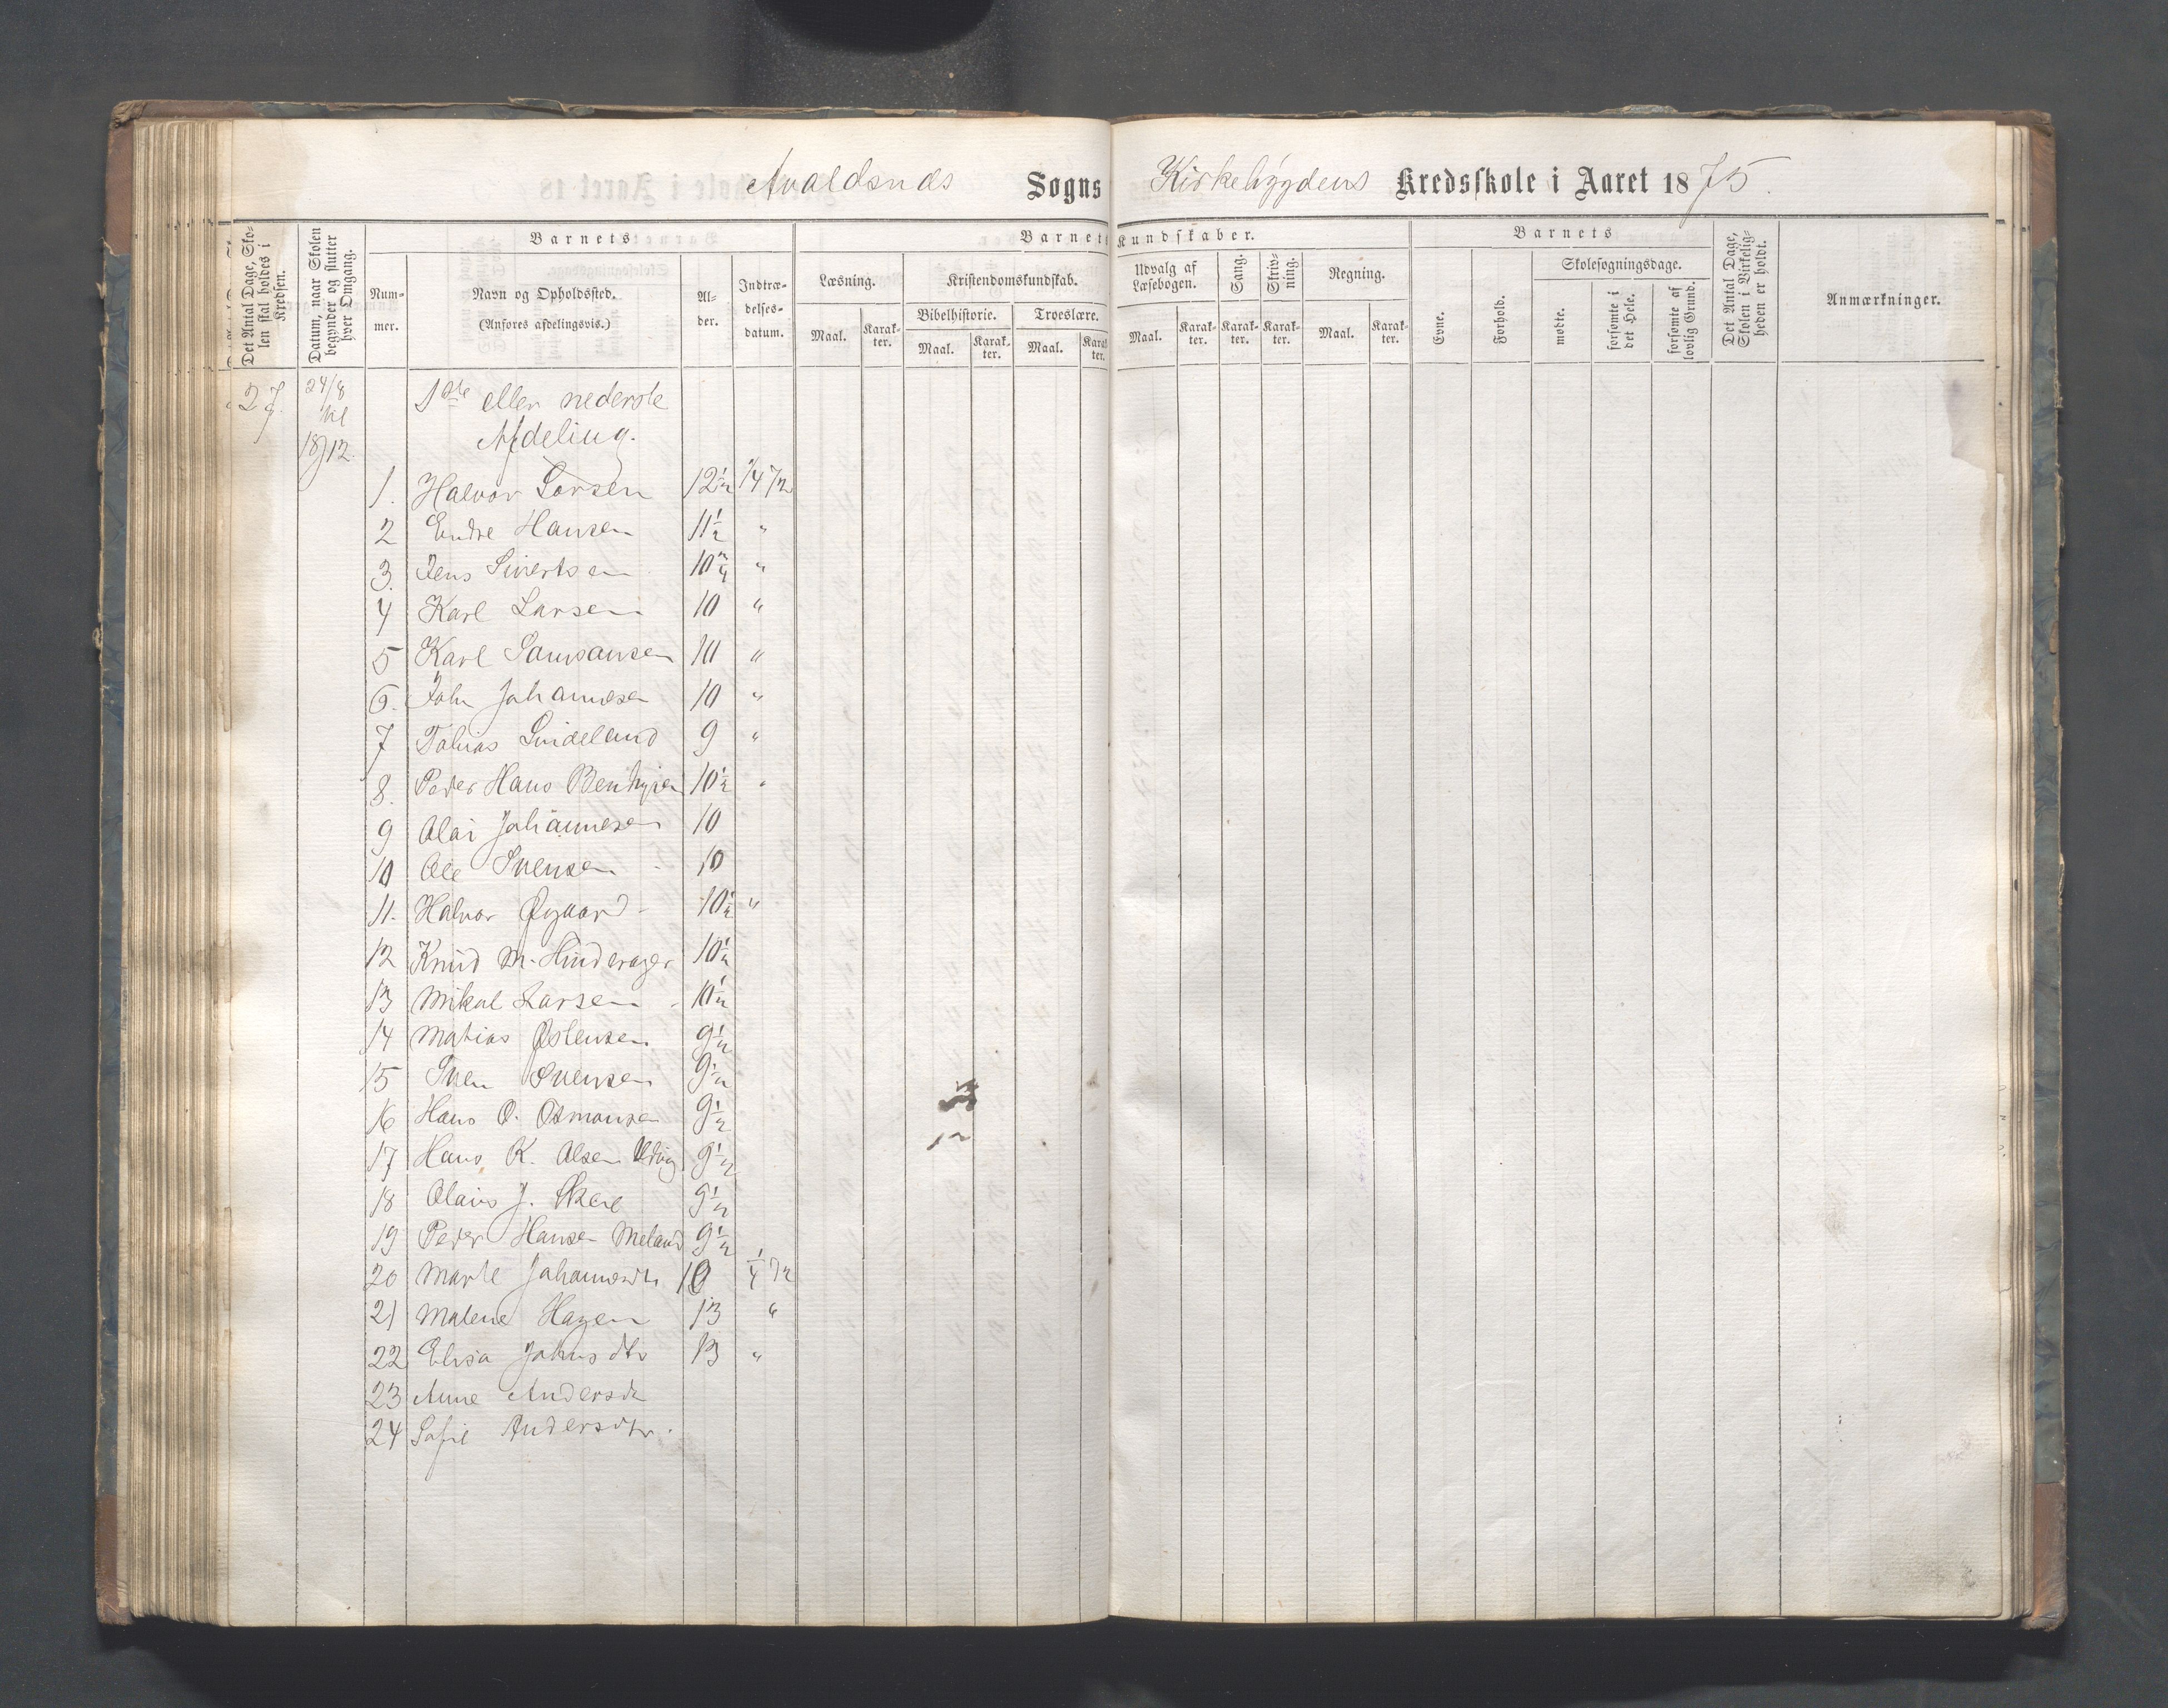 Avaldsnds Sogns Kirkebygdens Kredsskole i Aaret 1875.
Det Antal Dage, Skolen skal holdes i Kredsen.
Datum, naar Skolen begynder og slutter hver Omgang.
Barnets
Nummer.
Navn og Opholdssted.
(Anføres afdelingsvis.)
Alder.
Indtrædelsesdatum.
Barnets Kundskaber.
Læsning.
Maal. Karakter.
Kristendomskundskab.
Bibelhistorie. Troeslære.
Maal. Karakter. Maal. Karakter.
Udvalg af Læsebogen.
Maal. Karakter.
Sang.
Karakter.
Skrivning.
Karakter.
Regning.
Maal. Karakter.
Barnets
Evne.
Forhold.
Skolesøgningsdage.
mødte.
forsømte i det Hele.
forsømte af lovlig Grund.
Det Antal Dage, Skolen i Virkeligheden er holdt.
Anmærkninger.
24/8 til 18/12
1ste eller nederste
Afdeling.
1. Halvor Larsen 12½ 1/4 72
2 Endre Hansen 11½ "
3. Jens Sivertsen 10 "
4 Karl Larsen 10 "
5 Karl Samsansen 10 "
6. John Johannesen 10 "
7 Tobias Lindeland 9 "
8. Peder Hans 10½ "
9 Olai Johannesen 10
10 Ole Svensen 10
11. Halvor Øygaard 10½ "
12 Knud M. Hinderager 10½
13 Mikal Larsen 10½
14 Matias Østensen 9½
15 Sven Svensen 9½
16 Hans O. Osmonsen 9½
17 Hans K. Olsen 9½
18 Olaus J. Skare 9½
19 Peder Hansen Meland 9½
20 Marte Johannesdtr 10 1/4 72
21 Malene Hagen 13 "
22 Elisa Johnsdtr 13 "
23 Anne Andersdtr
24 Sofie Andersdtr.